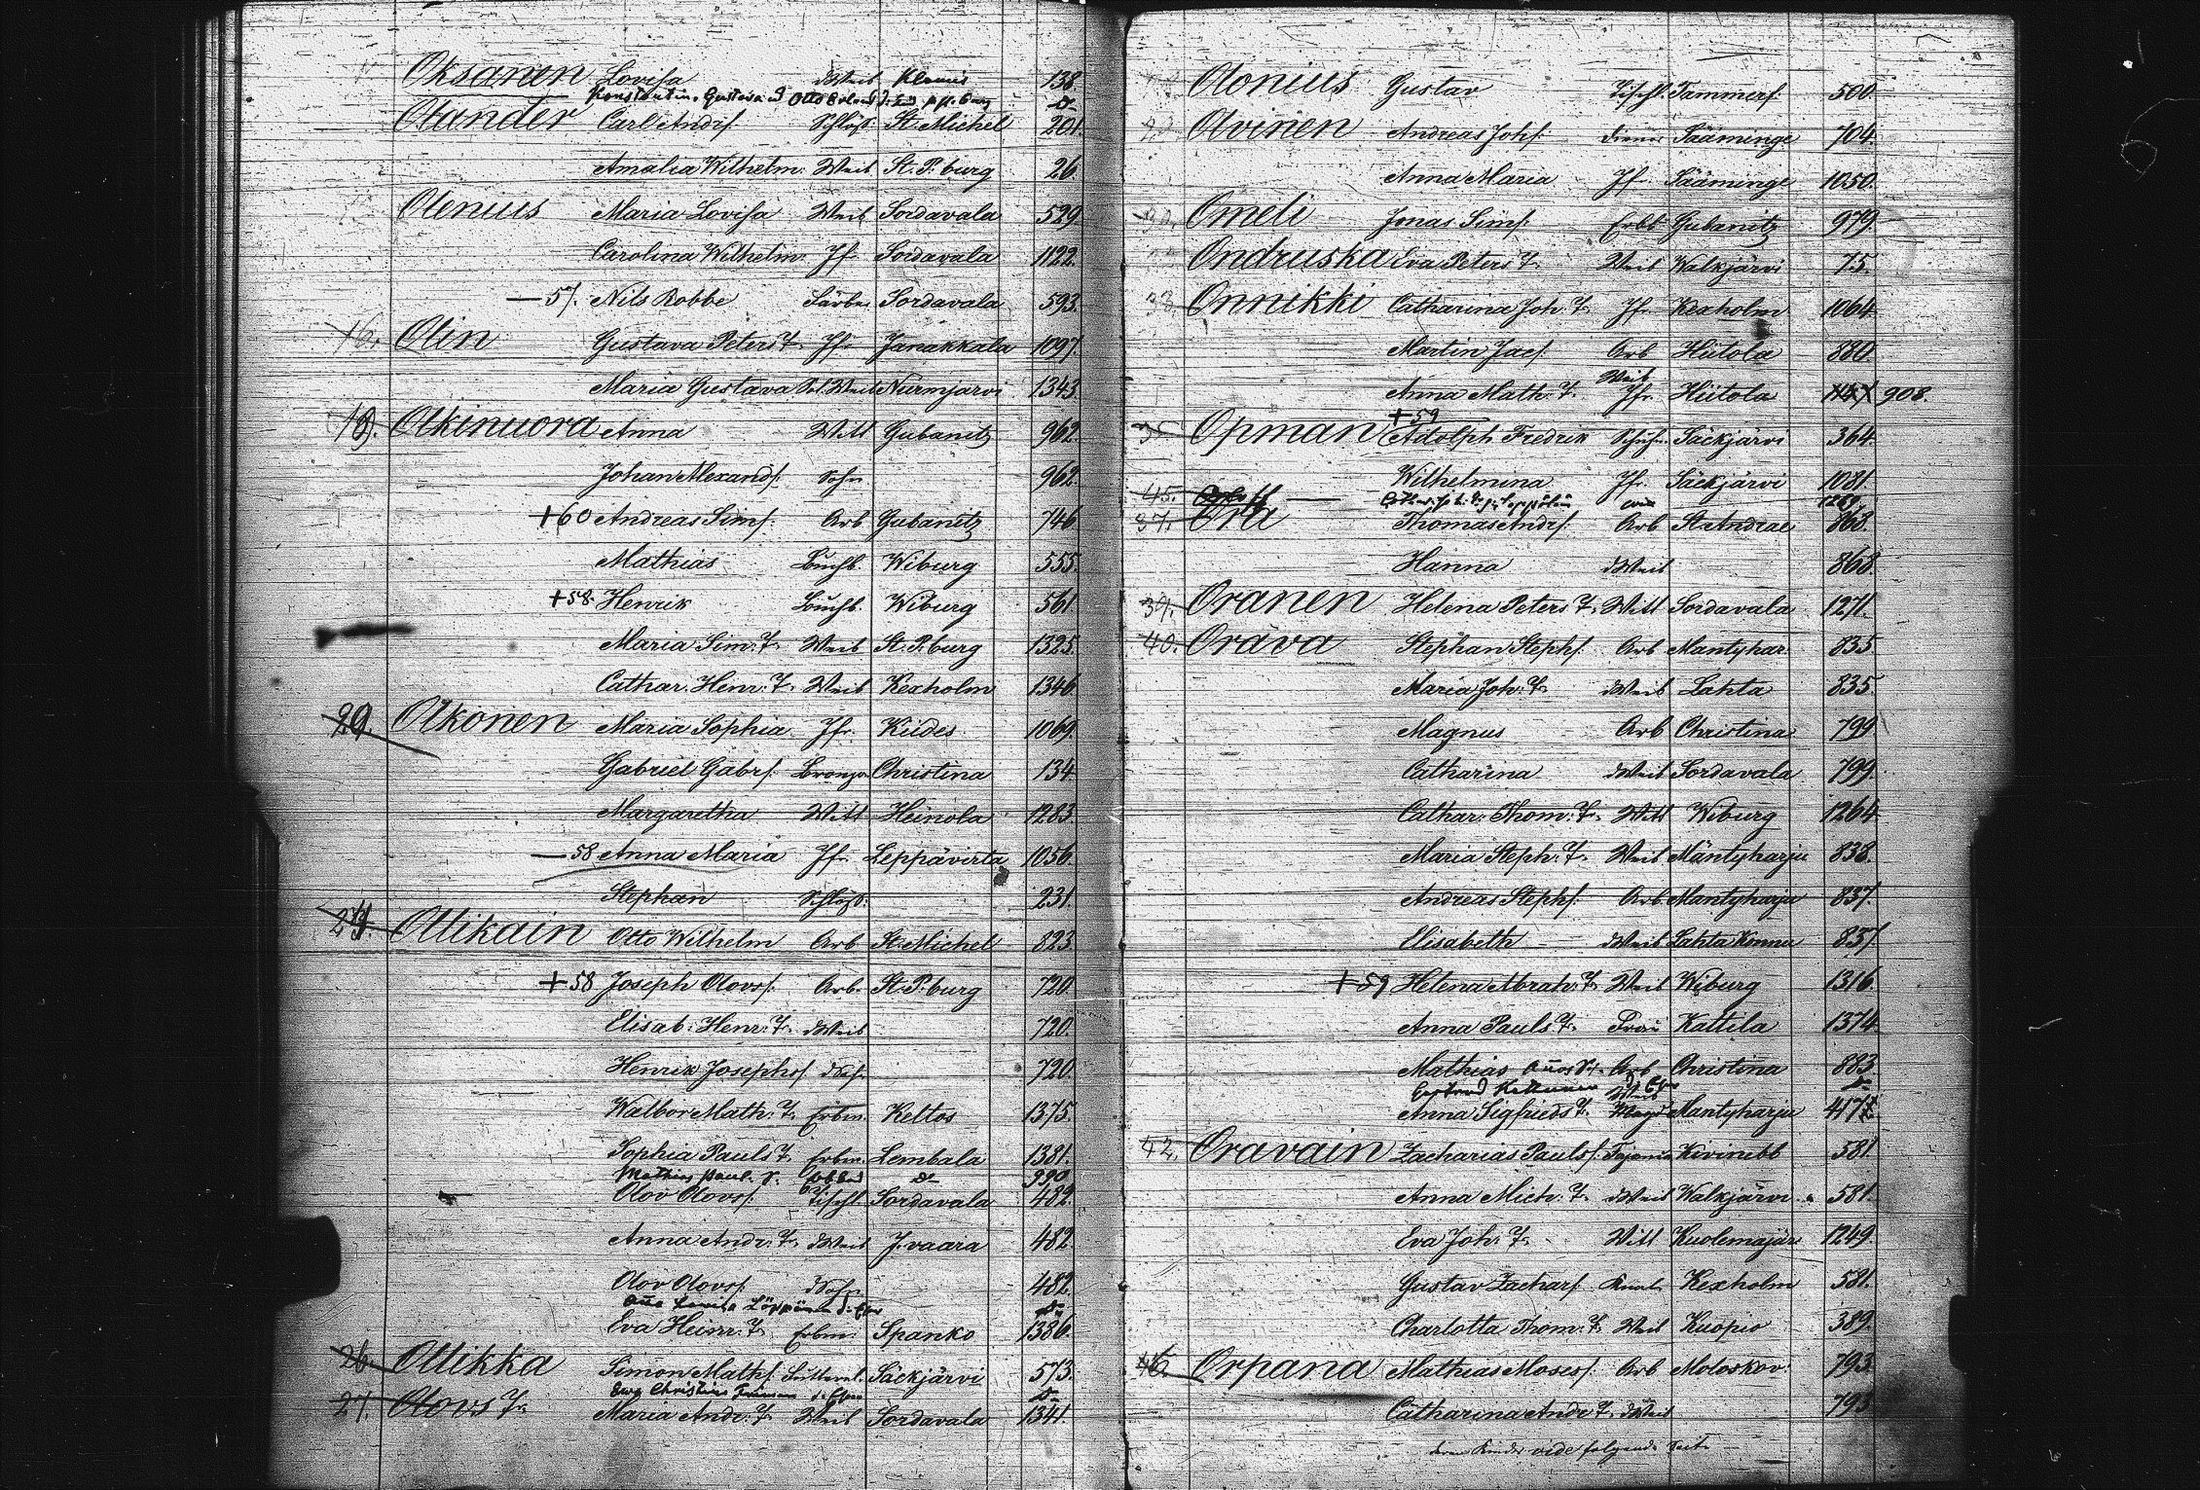 Oksanen Lovisa dWeib Klemis 138.
Konstantin, Gustava u Otto
Olander Carl Andrs. Schloss. St. Michel 201.
Amalia Wilhelm. Weib St. P:burg 26.
Olenius Maria Lovisa Weib Sordavala 529.
Carolina Wilhelm. Jfr. Sordavala 1122.
— 57. Nils Robbe Färber Sordavala 593.
16. Olin Gustava Peters T. Jfr. Janakkala 1097.
Maria Gustava Weib Nurmjarvi 1343.
19. Olkinuora Anna Witt Gubanitz 962.
Johan Alexands. Sohn 962.
+60 Andreas Sims. Arb Gubanitz 746.
Mathias Buchb. Wiburg 555.
+58. Henrik Buchb. Wiburg 561
Maria Sim: T. Weib St. P:burg 1325.
Cathar. Henr: T. Weib Kexholm 1346.
29. Olkonen Maria Sophia Jfr. Kides 1069.
Gabriel Gabrs. Bronzea Christina 134.
Margaretha Witt Heinola 1283.
— 58 Anna Maria Jfr. Leppävirta 1056.
Stephan Schloss. 231.
Ollikain Otto Wilhelm Arb St. Michel 823.
+58 Joseph Olovs. Arb. St. P:burg 720.
Elisab: Henr: T. dWeib 720.
Henrik Josephs. dSohn 720.
Walbor Math: T. Erbm. Keltos 1375.
Sophia Pauls T. Erbm. Lembala 1381.
Mathias Paul. S. do 990.
Olov Olovs. Tischl. Sordavala 482.
Anna Andr: T. dWeib J.vaara 482.
Olov Olovs. dSohn 482.
Eva Heinr: T. Erbm. Spanko 1386.
26. Ollikka Simon Maths. Futteral. Säckjärvi 573.
Eva Christina
27. Olovs T. Maria Andr: T. Weib Sordavala 1341.
Olonius Gustav Tischl. Tammerf. 500.
Olvinen Andreas Johs. Diener Sääminge 704.
Anna Maria Jfr. Sääminge 1050.
Omeli Jonas Sims. Erbb Gubanitz 979.
Ondruska Eva Peters T. Weib Walkjärvi 75.
33. Onnikki Catharina Joh: T. Jfr. Kexholm 1064.
Martin Jacs. Arb Hiitola 880.
Weib
Anna Math: T. Jfr. Hiitola 908.
+59
Opman Adolph Fredrik Schuhm. Säckjärvi 364.
Wilhelmina Jfr. Säckjärvi 1081.
45. Orloff —
37. Ora Thomas Andrs. Arb St. Andreae 868.
Hanna dWeib 868.
39. Oranen Helena Peters T. Witt Sordavala 1271.
40. Orava Stephan Stephs. Arb Mantyhar. 835
Maria Joh: T. dWeib Lahta 835.
Magnus Arb Christina 799.
Catharina dWeib Sordavala 799.
Cathar: Thom: T. Witt Wiburg 1264.
Maria Steph: T. Weib Mäntyharju 838.
Andreas Stephs. Arb Mantyharju 837.
Elisabeth dWeib Lahta Konnu 837.
+59 Helena Abrah: T. Weib Wiburg 1316.
Anna Pauls T. Frau Kattila 1374.
Mathias Arb Christina 883.
Gertrud
Anna Sigfrieds T. Magd Mantyharju 417.
42. Oravain Zacharias Pauls. Kivinebb 581.
Anna Mich: T. dWeib Walkjärvi. 581.
Eva Joh: T. Witt Kuolemajär 1249.
Gustav Zachars. Kexholm 581.
Charlotta Thom: T. Weib Kuopio 389.
46. Orpana Mathias Moses. Arb Moloskov. 793.
Catharina Andr T. dWeib 793.
deren Kinder vide folgende Seite